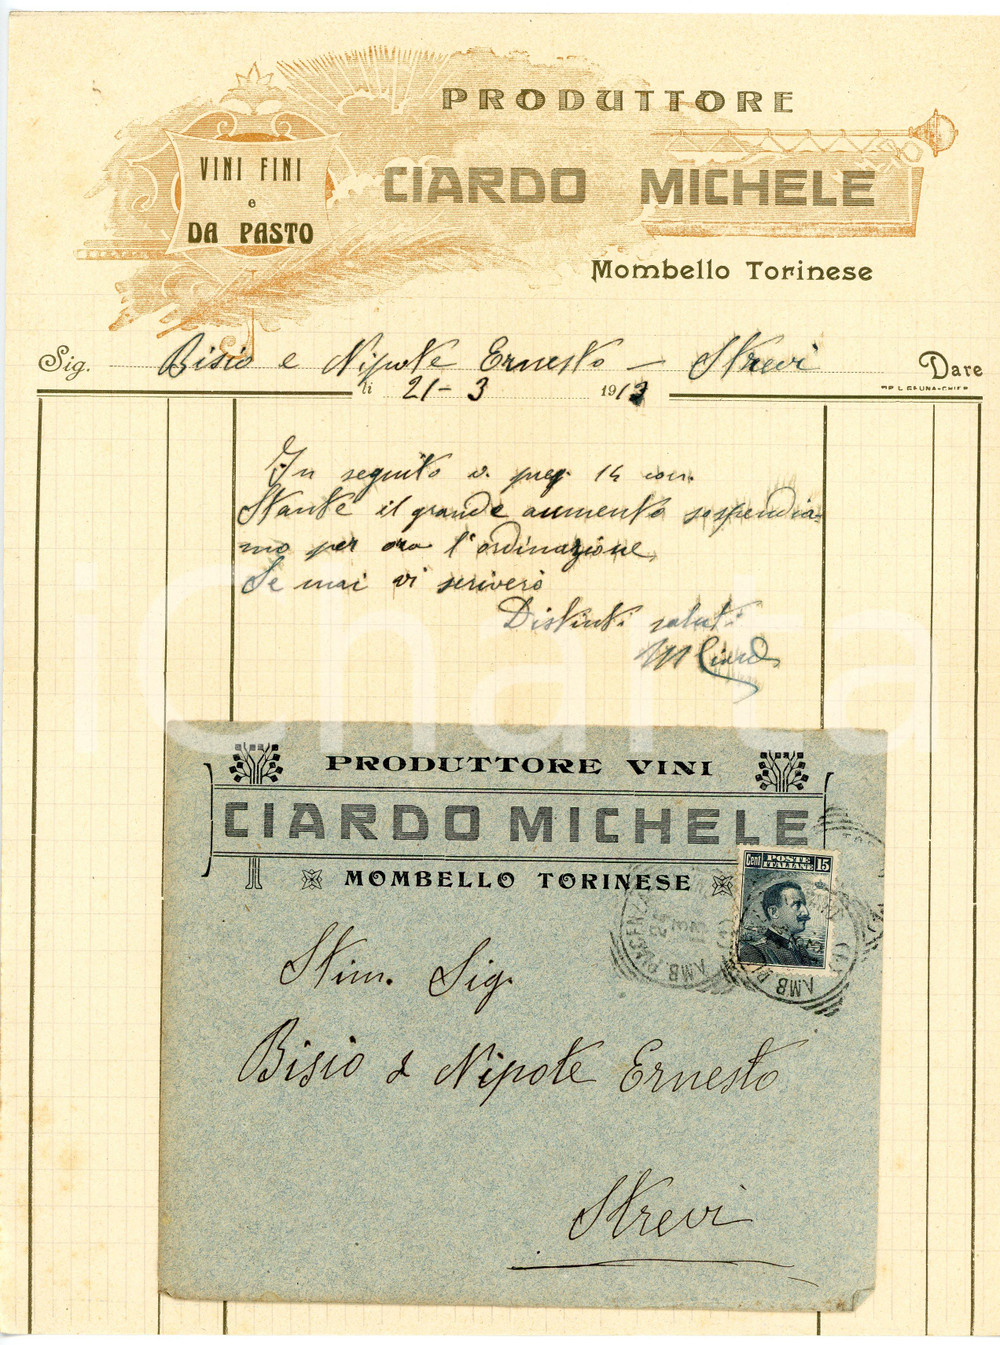 PRODUTTORE
VINI FINI
e
DA PASTO
CIARDO MICHELE
Mombello Torinese
Sig. Bisio e Nipote Ernesto – Strevi Dare
li 21-3 1913
In seguito v. preg. 14 corr.
Stante il grande aumento sospendia-
mo per ora l'ordinazione
Se mai vi scriverò
Distinti saluti
M Ciardo
iCharta
PRODUTTORE VINI
CIARDO MICHELE
MOMBELLO TORINESE
Cent POSTE ITALIANE 15
AMB. PIACENZA
Stim. Sig.
Bisio & Nipote Ernesto
Strevi